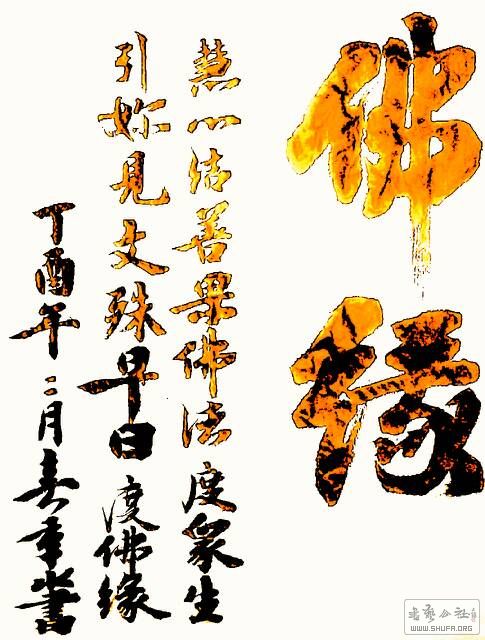 佛缘
慧心结善果佛法度眾生
引妳見文殊早日度佛缘
丁酉年二月書
書藝公社
WWW.SHUFA.ORG